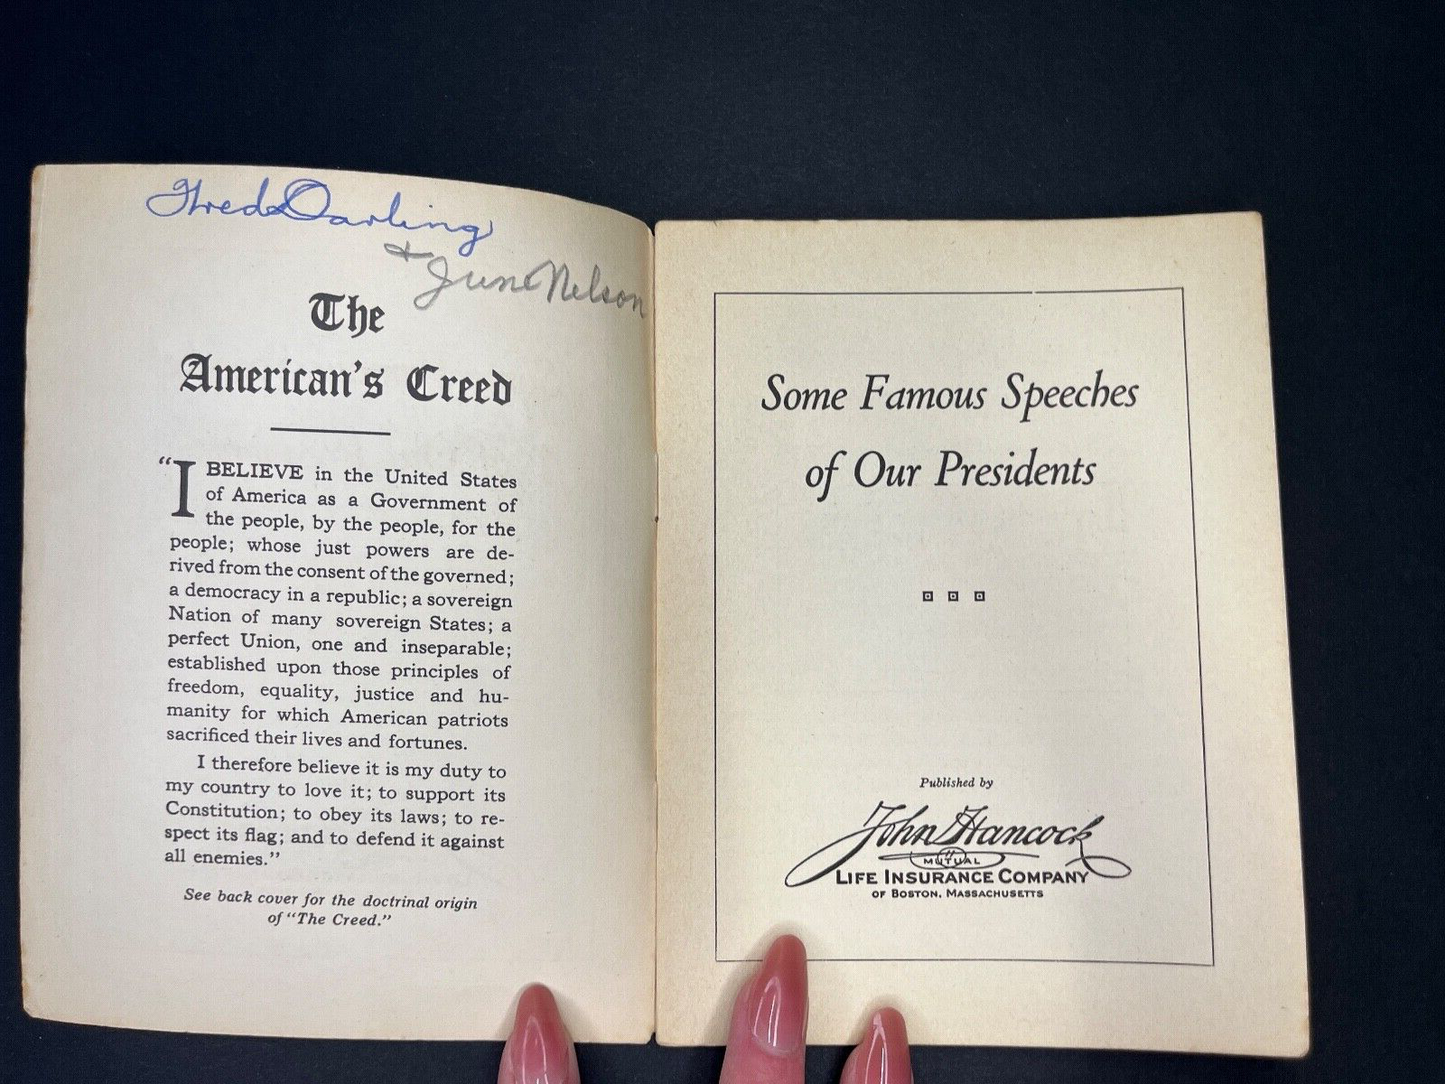 Fred Darling
+ June Nelson
The
American's Creed
"I BELIEVE in the United States
of America as a Government of
the people, by the people, for the
people; whose just powers are de-
rived from the consent of the governed;
a democracy in a republic; a sovereign
Nation of many sovereign States; a
perfect Union, one and inseparable;
established upon those principles of
freedom, equality, justice and hu-
manity for which American patriots
sacrificed their lives and fortunes.
I therefore believe it is my duty to
my country to love it; to support its
Constitution; to obey its laws; to re-
spect its flag; and to defend it against
all enemies."
See back cover for the doctrinal origin
of "The Creed."
Some Famous Speeches
of Our Presidents
Published by
John Hancock
MUTUAL
LIFE INSURANCE COMPANY
OF BOSTON, MASSACHUSETTS